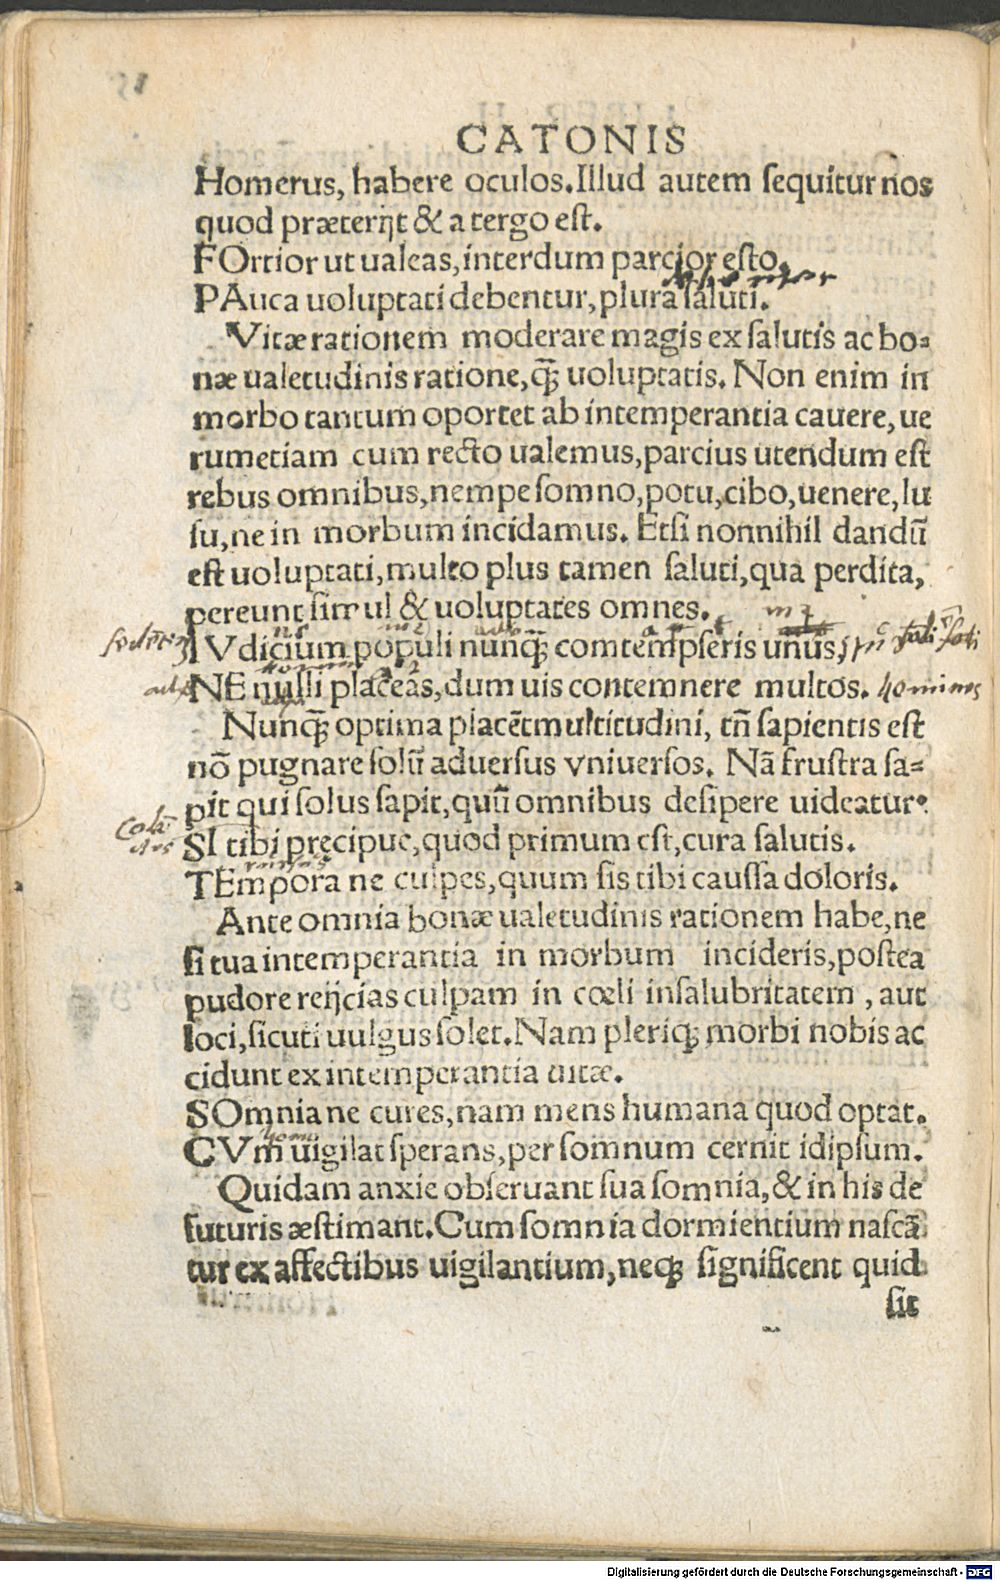 CATONIS
Homerus, habere oculos. Illud autem sequitur nos
quod præterijt & a tergo est.
FOrtior ut ualeas, interdum parcior esto.
PAuca uoluptati debentur, plura saluti.
Vitæ rationem moderare magis ex salutis ac bo=
næ ualetudinis ratione, q̃ꝫ uoluptatis. Non enim in
morbo tantum oportet ab intemperantia cauere, ue
rumetiam cum recto ualemus, parcius utendum est
rebus omnibus, nempe somno, potu, cibo, uenere, lu
su, ne in morbum incidamus. Etsi nonnihil dandũ
est uoluptati, multo plus tamen saluti, qua perdita,
pereunt simul & uoluptates omnes.
IVdicium populi nunq̃ꝫ comtempseris unus,
NE nulli placeas, dum uis contemnere multos. homines
Nunq̃ꝫ optima placẽt multitudini, tñ sapientis est
nõ pugnare solũ aduersus vniuersos. Nã frustra sa=
pit qui solus sapit, quũ omnibus desipere uideatur.
SI tibi pręcipue, quod primum est, cura salutis.
TEmpora ne culpes, quum sis tibi caussa doloris.
Ante omnia bonæ ualetudinis rationem habe, ne
si tua intemperantia in morbum incideris, postea
pudore reijcias culpam in cœli insalubritatem, aut
loci, sicuti uulgus solet. Nam pleriqꝫ morbi nobis ac
cidunt ex intemperantia uitæ.
SOmnia ne cures, nam mens humana quod optat.
CVm uigilat sperans, per somnum cernit idipsum.
Quidam anxie obseruant sua somnia, & in his de
futuris æstimant. Cum somnia dormientium nascã
tur ex affectibus uigilantium, neqꝫ significent quid
sit
Digitalisierung gefördert durch die Deutsche Forschungsgemeinschaft - DFG